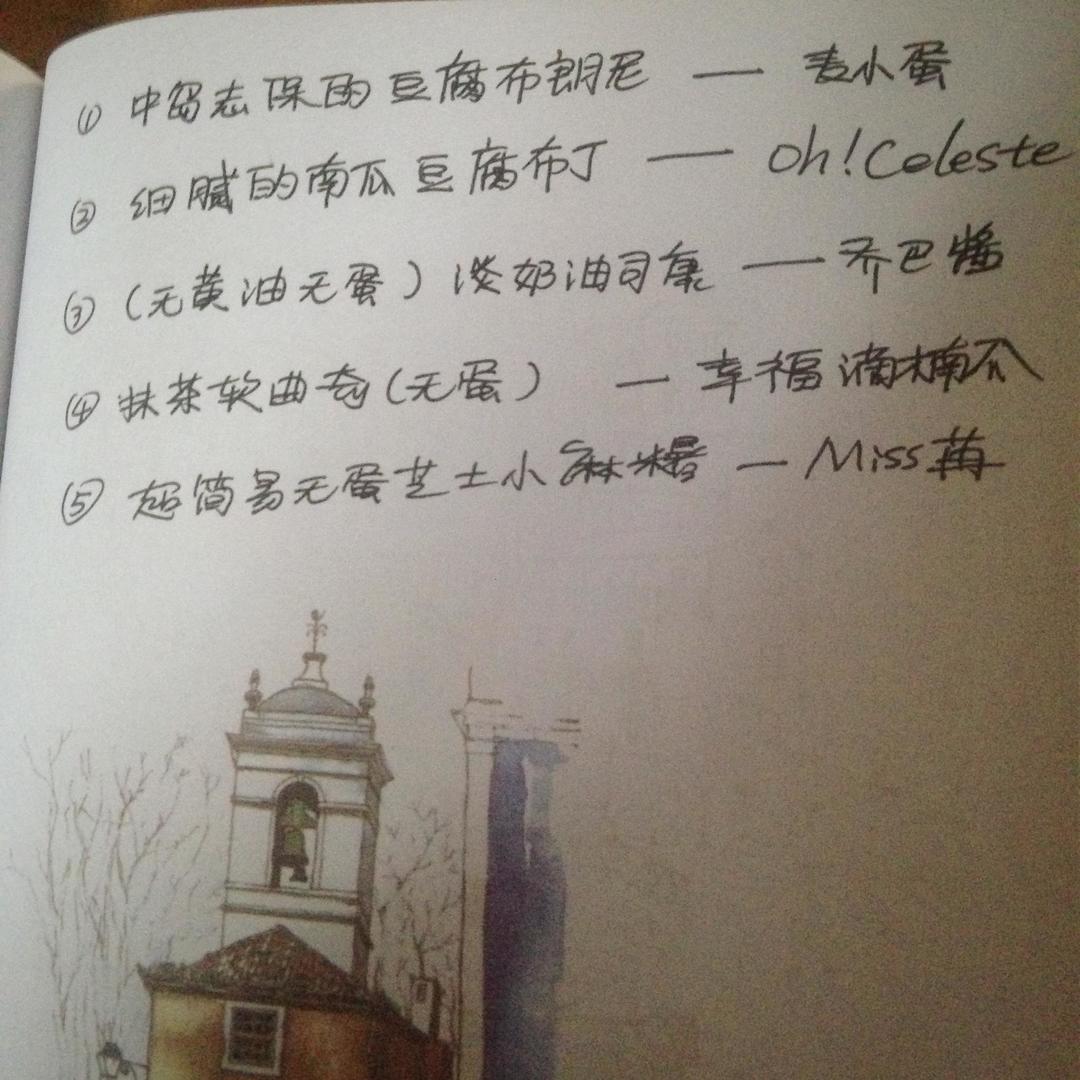 ① 中岛志保的豆腐布朗尼 — 麦小蛋
② 细腻的南瓜豆腐布丁 — Oh!Celeste
③ (无黄油无蛋) 淡奶油司康 — 乔巴酱
④ 抹茶软曲奇(无蛋) — 幸福滴楠
⑤ 超简易无蛋芝士小麻糬 — Miss苒